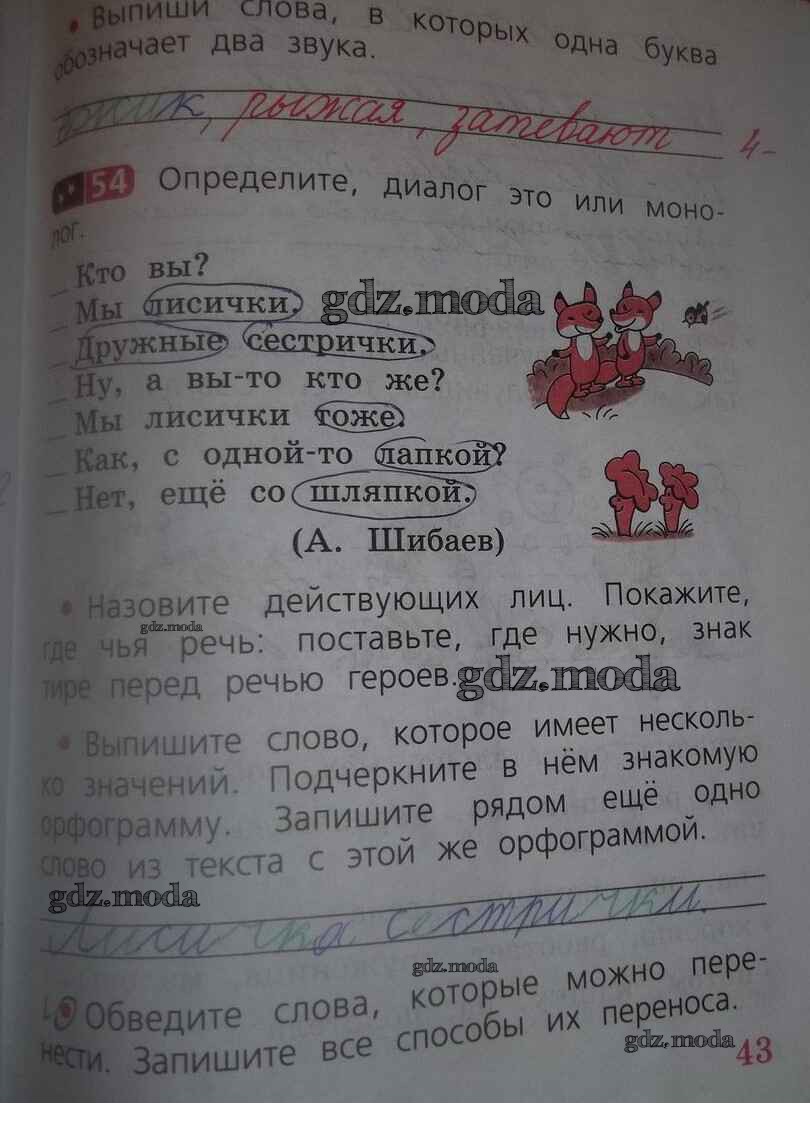 • Выпиши слова, в которых одна буква
обозначает два звука.
рыжая, затевают 4-
54 Определите, диалог это или моно-
лог.
_ Кто вы?
_ Мы лисички. gdz.moda
_ Дружные сестрички.
_ Ну, а вы-то кто же?
_ Мы лисички тоже.
_ Как, с одной-то лапкой?
_ Нет, ещё со шляпкой.
(А. Шибаев)
• Назовите действующих лиц. Покажите,
gdz.moda
где чья речь: поставьте, где нужно, знак
тире перед речью героев. gdz.moda
• Выпишите слово, которое имеет несколь-
ко значений. Подчеркните в нём знакомую
орфограмму. Запишите рядом ещё одно
слово из текста с этой же орфограммой.
gdz.moda
Лисичка сестрички.
gdz.moda
• Обведите слова, которые можно пере-
нести. Запишите все способы их переноса.
gdz.moda
43